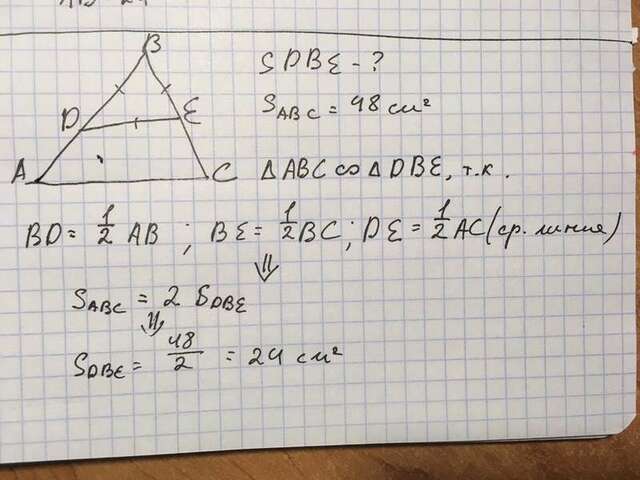 B
S DBE - ?
D E
S ABC = 48 см²
A C
Δ ABC ∞ Δ DBE, т.к.
BD = 1/2 AB ; BE = 1/2 BC ; DE = 1/2 AC (ср. линия)
⇓
S ABC = 2 S DBE
⇓
S DBE = 48/2 = 24 см²